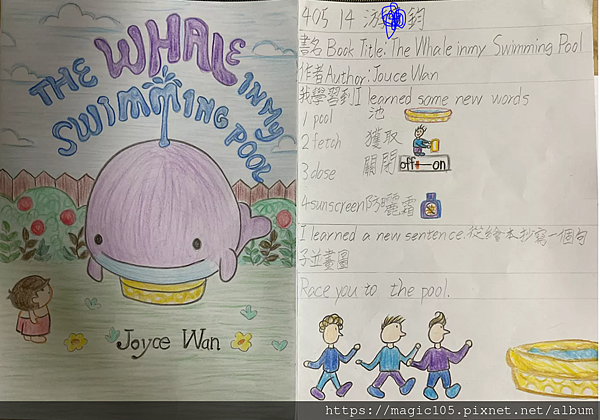 THE WHALE IN MY
SWIMMING POOL
Joyce Wan
405 14 游 鈞
書名 Book Title: The Whale inmy Swimming Pool
作者 Author: Jouce Wan
我學習到 I learned some new words
1 pool 池
2 fetch 獲取
3 close 關閉 off on
4 sunscreen 防曬霜
I learned a new sentence.從繪本抄寫一個句
子並畫圖
Race you to the pool.
https://magic105.pixnet.net/album